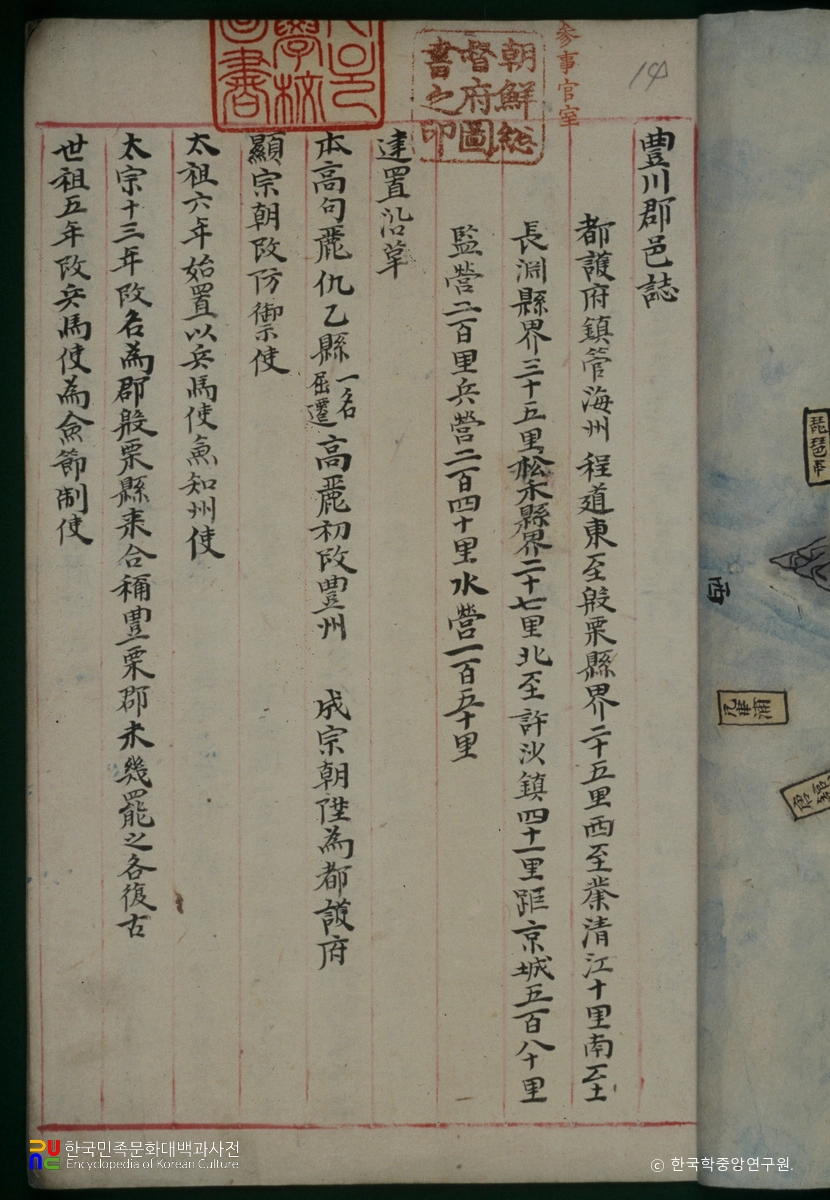 豊川郡邑誌
都護府鎮管海州 程道東至殷栗縣界二十五里西至業清江十里南至
長淵縣界三十五里松禾縣界二十七里北至許沙鎮四十一里距京城五百八十里
監營二百里兵營二百四十里水營一百五十里
建置沿革
本高句麗仇乙縣一名屈遷高麗初改豊州 成宗朝陞為都護府
顯宗朝改防禦使
太祖六年始置以兵馬使兼知州使
太宗十三年改名為郡殷栗縣来合稱豊栗郡未幾罷之各復古
世祖五年改兵馬使為僉節制使
朝鮮総督府圖書之印
参事官室
琵琶串
西
한국민족문화대백과사전
Encyclopedia of Korean Culture
© 한국학중앙연구원.